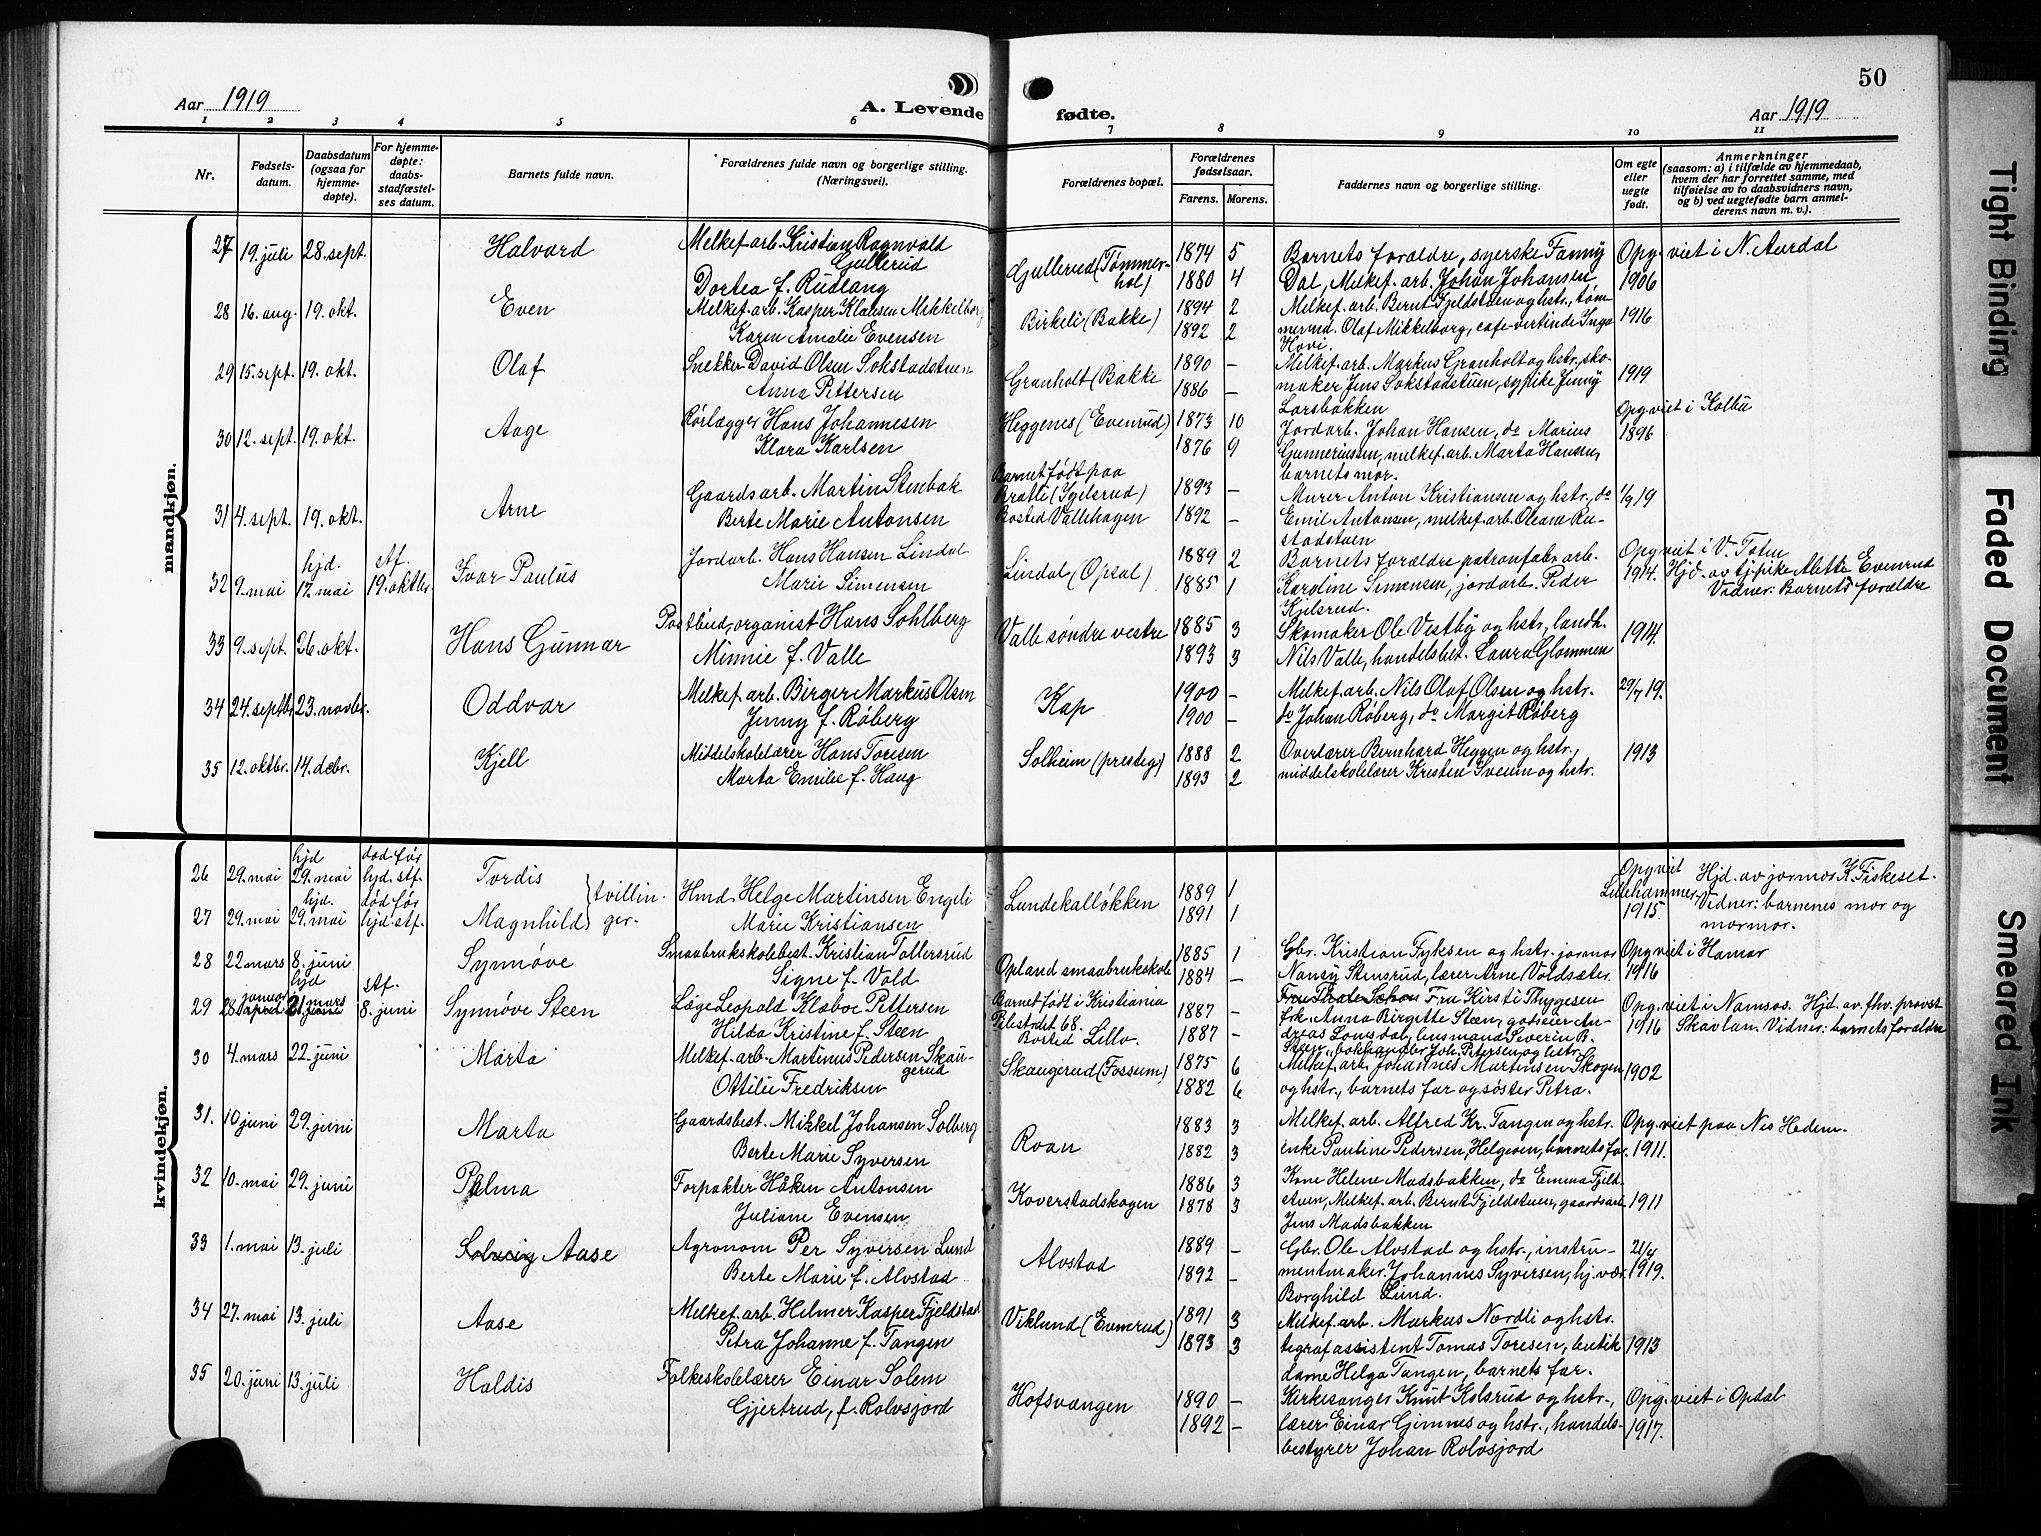 50
Aar 1919
A. Levende fødte.
Aar 1919
1 2 3 4 5 6 7 8 9 10 11
Nr.
Fødsels-
datum.
Daabsdatum
(ogsaa for
hjemme-
døpte).
For hjemme-
døpte:
daabs-
stadfæstel-
ses datum.
Barnets fulde navn.
Forældrenes fulde navn og borgerlige stilling.
(Næringsvei).
Forældrenes bopæl.
Forældrenes
fødselsaar.
Farens. Morens.
Faddernes navn og borgerlige stilling.
Om egte
eller
uegte
født.
Anmerkninger
(saasom: a) i tilfælde av hjemmedaab,
hvem der har forrettet samme, med
tilføielse av to daabsvidners navn,
og b) ved uegtefødte barn anmel-
derens navn m. v.).
mandkjøn.
27 19. juli 28. sept. Halvard Melkef. arb. Kristian Ragnvald
Gullerud
Dortea f. Rudlang
Gullerud (Tømmer-
hol)
1874 5
1880 4
Barnets foraldre, syerske Fanny
Dal, Melkef. arb. Johan Johansen
Opg. viet i N. Aurdal
1906
28 16. aug. 19. okt. Even Melkef. arb. Kasper Klausen Mikkelborg
Karen Amalie Evensen
Birkeli (Bakke)
1894 2
1892 2
Melkef. arb. Bernt Fjeldstuen og hstr., tøm-
merund. Olaf Mikkelborg, cafe-vertinde Inga
Hovi.
1916
29 15. sept. 19. okt. Olaf Snekker David Olsen Sokstadstuen
Anna Pettersen
Granholt (Bakke
1890 –
1886 –
Melkef. arb. Markus Granholt og hstr., sko-
maker Jens Sokstadstuen, sypike Jenny
Larsbakken
1919
30 12. sept. 19. okt. Aage Rørlægger Hans Johannesen
Klara Karlsen
Heggenes (Evenrud)
1873 10
1876 9
Jordarb. Johan Hansen, do Marius
Gunneriussen, melkef. arb. Marta Hansen,
barnets mor.
Opg. viet i Kolbu
1896
31 4. sept. 19. okt. Arne Gaardsarb. Martin Stenbak
Berte Marie Antonsen
Barnet født paa
Bratli (Igelsrud)
Bosted Vallehagen
1893 –
1892 –
Murer Anton Kristiansen og hstr., do
Emil Antonsen, melkef. arb. Oleane Ru-
stadstuen
1/9 19
32 9. mai hjd. 17. mai stf. 19. oktbr. Ivar Paulus Jordarb. Hans Hansen Lindal
Marie Simensen
Lindal (Opsal)
1889 2
1885 1
Barnets foraldre patronfabr. arb.
Karoline Simensen, jordarb. Peder
Kjelsrud.
Opg. viet i V. Toten
1914. Hjd. av tj. pike Alette Evenrud
Vidner: Barnets foraldre
33 9. sept. 26. okt. Hans Gunnar Postbud, organist Hans Sohlberg
Minnie f. Valle
Valle søndre vestre
1885 3
1893 3
Skomaker Ole Vestby og hstr., landh.
Nils Valle, handelsbet. Laura Glommen
1914.
34 24. septbr. 23. novbr. Oddvar Melkef. arb. Birger Markus Olsen
Jenny f. Røberg
Kap
1900 –
1900 –
Melkef. arb. Nils Olaf Olsen og hstr.
do Johan Røberg, do Margit Røberg
29/7 19.
35 12. oktbr. 14. debr. Kjell Middelskolelærer Hans Toresen
Marta Emilie f. Haug
Solheim (presteg)
1888 2
1893 2
Overlærer Bernhard Heggen og hstr.,
middelskolelærer Kristen Sveum og hstr.
1913
kvindekjøn.
26 29. mai hjd 29. mai død før hjd. stf. Tordis
27 29. mai hjd. 29. mai død før hjd stf. Magnhild
tvillin-
ger.
Hmd Helge Martinsen Engeli
Marie Kristiansen
Lundekalløkken
1889 1
1891 1
Opg viet
Lillehammer
1915.
Hjd. av jormor K. Fiskeset.
Vidner: barnenes mor og
mormor.
28 22 mars 8. juni Synnøve Smaabrukskolebest. Kristian Tollersrud
Signe f. Vold
Opland smaabrukskole
1885 1
1884 –
Gbr. Kristian Fykesen og hstr. jormor
Nansy Stensrud, lærer Arne Voldsæter.
Opg. viet i Hamar
1916
29 28. januar hjd 21. mars stf. 8. juni Synnøve Steen Læge Leopold Klæboe Pettersen
Hilda Kristine f. Steen
Barnet født i Kristiania
Pilestrædet 68.
Bosted Lillo.
1887 –
1887 –
Fru Kirsti Thygesen
frk. Anna Birgitte Steen, godseier An-
dreas Lonsdal, lensmand Severin B.
Steen, bokhandler Joh. Petersen og hstr.
Opg. viet i Namsos. Hjd. av fhv. provst
1916 Skavlan. Vidner: barnets foraldre
30 4. mars 22. juni Marta Melkef. arb. Martinus Pedersen Skau-
gerud
Ottilie Fredriksen
Skaugerud (Fossum)
1875 6
1882 6
Melkef. arb. Johannes Martinsen Skogen
og hstr., barnets far og søster Petra.
1902
31. 10 juni 29. juni Marta Gaardsbest. Mikkel Johansen Solberg
Berte Marie Syversen
Roan
1883 3
1882 3
Melkef. arb. Alfred Kr. Tangen og hstr.
enke Pauline Pedersen, Helgeven, barnets far.
Opg. viet paa Nes Hedem.
1911.
32 10. mai 29. juni Palma Forpakter Håken Antonsen
Juliane Evensen
Koverstadskogen
1886 3
1878 3
Kone Helene Madsbakken, do Emma Fjeld-
stuen, Melkef. arb. Bernt Fjeldstuen, gaardsarb
Jens Madsbakken
1911
33 1. mai 13. juli Solveig Aase Agronom Per Syversen Lund
Berte Marie f. Alvstad
Alvstad
1889 –
1892 –
Gbr. Ole Alvstad og hstr., instru-
mentmaker Johannes Syversen, hj. vær.
Borghild Lund.
21/4
1919.
34 27. mai 13. juli Aase Melkef. arb. Helmer Kasper Fjeldstad
Petra Johanne f. Tangen
Viklund (Evenrud)
1891 3
1893 3
Melkef. arb. Markus Nordli og hstr.
tegrafassistent Tomas Toresen, butik
dame Helga Tangen, barnets far.
1913
35 20. juni 13. juli Haldis Folkeskolelærer Einar Solem
Gjertrud, f. Rolvsjord
Hofsvangen
1890 –
1892 –
Kirkesanger Knut Kolsrud og hstr.,
lærer Einar Gimnes og hstr., handels-
bestyrer Johan Rolvsjord
Opg. viet i Opdal
1917.
Tight Binding
Faded Document
Smeared Ink